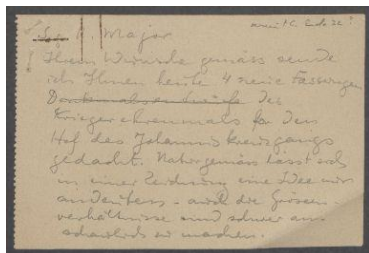 Major
Ihrem Wunsche gemäss sende
ich Ihnen heute 4 neue Fassungen
Denkmalsentwürfe des
Kriegerehrenmals für den
Hof des Johanniskreuzgangs
gedacht. Naturgemäss lässt sich
in einer Zeichnung eine Idee nur
andeuten - auch die Grössen-
verhältnisse sind schwer an-
schaulich zu machen.